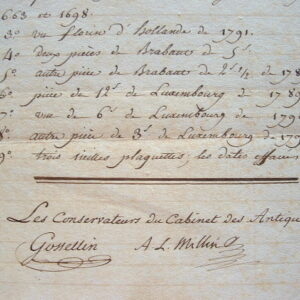 1663 et 1698.
3° un florin d'hollande de 1791.
4° deux pièces de Brabant de 5s.
5° autre pièce de Brabant de 2s ½ de 178
6° pièce de 12s de Luxembourg de 178
7° une de 6s de Luxembourg de 179
8° autre pièce de 3s de Luxembourg de 179
9° trois vieilles plaquettes; les dates effacé
Les Conservateurs du Cabinet des Antique
Gossellin A. L. Millin